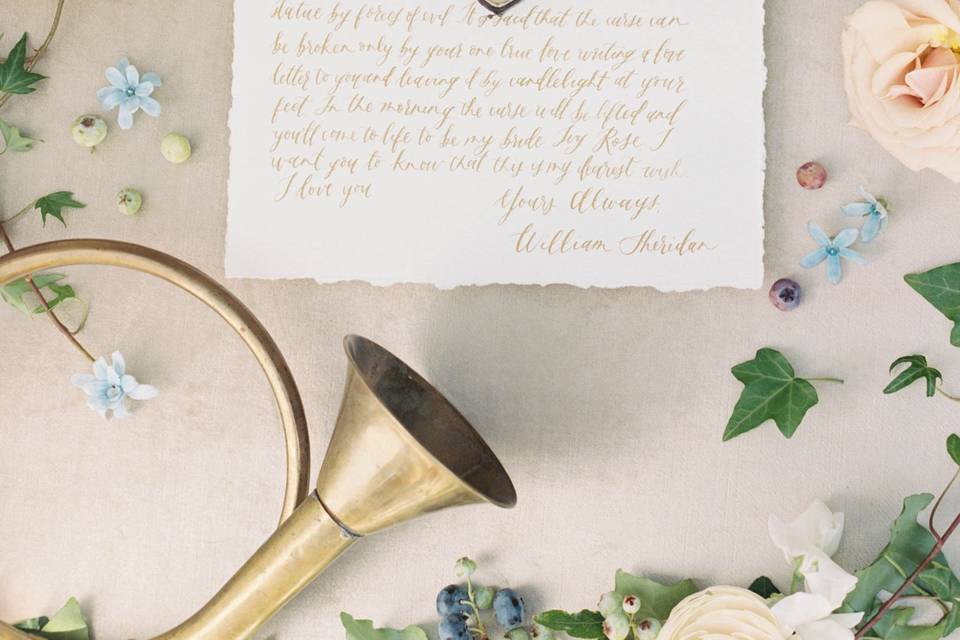 statue by forces of evil It is said that the curse can
be broken only by your one true love writing a love
letter to you and leaving it by candlelight at your
feet. In the morning the curse will be lifted and
you'll come to life to be my bride Ivy Rose. I
want you to know that this is my dearest wish.
I love you
Yours Always,
William Sheridan